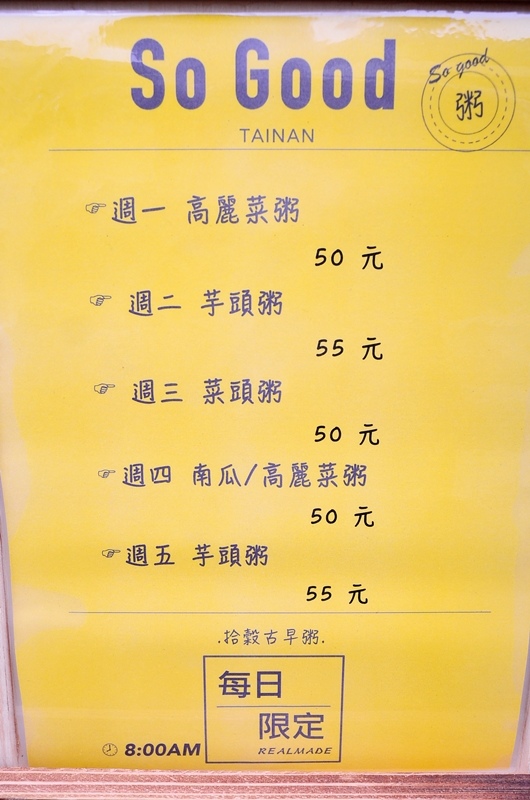 So Good
So good
粥
TAINAN
☞週一 高麗菜粥
50 元
☞週二 芋頭粥
55 元
☞週三 菜頭粥
50 元
☞週四 南瓜/高麗菜粥
50 元
☞週五 芋頭粥
55 元
.拾穀古早粥.
每日
限定
REALMADE
8:00AM